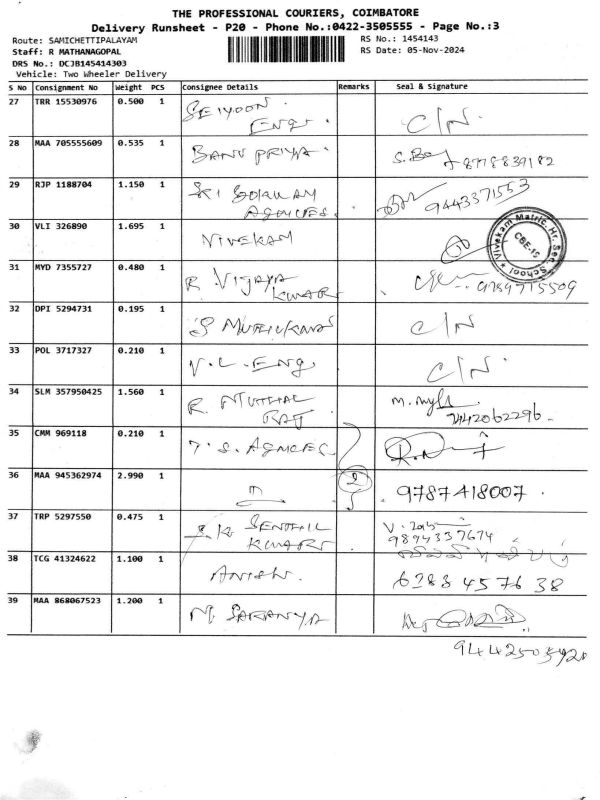 THE PROFESSIONAL COURIERS, COIMBATORE
Delivery Runsheet - P20 - Phone No.:0422-3505555 - Page No.:3
Route: SAMICHETTIPALAYAM RS No.: 1454143
Staff: R MATHANAGOPAL RS Date: 05-Nov-2024
DRS No.: DCJB145414303
Vehicle: Two Wheeler Delivery
S No Consignment No Weight PCS Consignee Details Remarks Seal & Signature
27 TRR 15530976 0.500 1 SEIYOON Eng. C/N.
28 MAA 705555609 0.535 1 BANU PRIYA. 8778839182
29 RJP 1188704 1.150 1 SRI GOKULAM AGENCIES. 9443371553
30 VLI 326890 1.695 1 VIVEKAM
Vivekam Matric. Hr. Sec. School * CBE-15
31 MYD 7355727 0.480 1 R VIJAYA KUMAR 9789715509
32 DPI 5294731 0.195 1 S MUTHUKUMAR C/N
33 POL 3717327 0.210 1 V.L. ENG. C/N.
34 SLM 357950425 1.560 1 R. MUTHAL RAJ 7442062296
35 CMM 969118 0.210 1 T.S. AGENCIES
36 MAA 945362974 2.990 1 2 9787418007.
37 TRP 5297550 0.475 1 S.K SENTHIL KUMAR 9894337674
38 TCG 41324622 1.100 1 ANISH. 6288457638
39 MAA 868067523 1.200 1 M. SARANYA